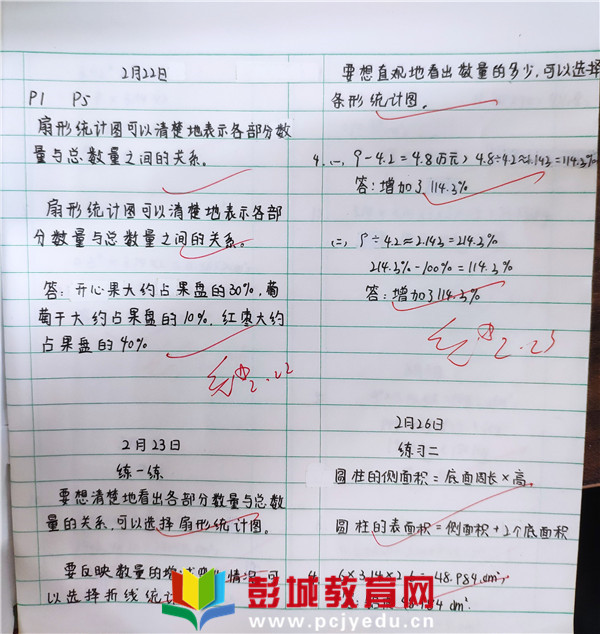 2月22日
P1 P5
扇形统计图可以清楚地表示各部分数
量与总数量之间的关系。
扇形统计图可以清楚地表示各部
分数量与总数量之间的关系。
答：开心果大约占果盘的30%，葡
萄干大约占果盘的10%，红枣大约
占果盘的40%
2.22
2月23日
练一练
要想清楚地看出各部分数量与总数
量的关系，可以选择扇形统计图。
要反映数量的增减变化情况，可
以选择折线统计
要想直观地看出数量的多少，可以选择
条形统计图。
4.(一) 9-4.2=4.8(万元) 4.8÷4.2≈1.143=114.3%
答：增加了114.3%
(二) 9÷4.2≈2.143=214.3%
214.3%-100%=114.3%
答：增加了114.3%
2.23
2月26日
练习二
圆柱的侧面积=底面周长×高
圆柱的表面积=侧面积+2个底面积
×3.14×2.6=48.984dm²
dm²
彭城教育网
www.pcjyedu.com